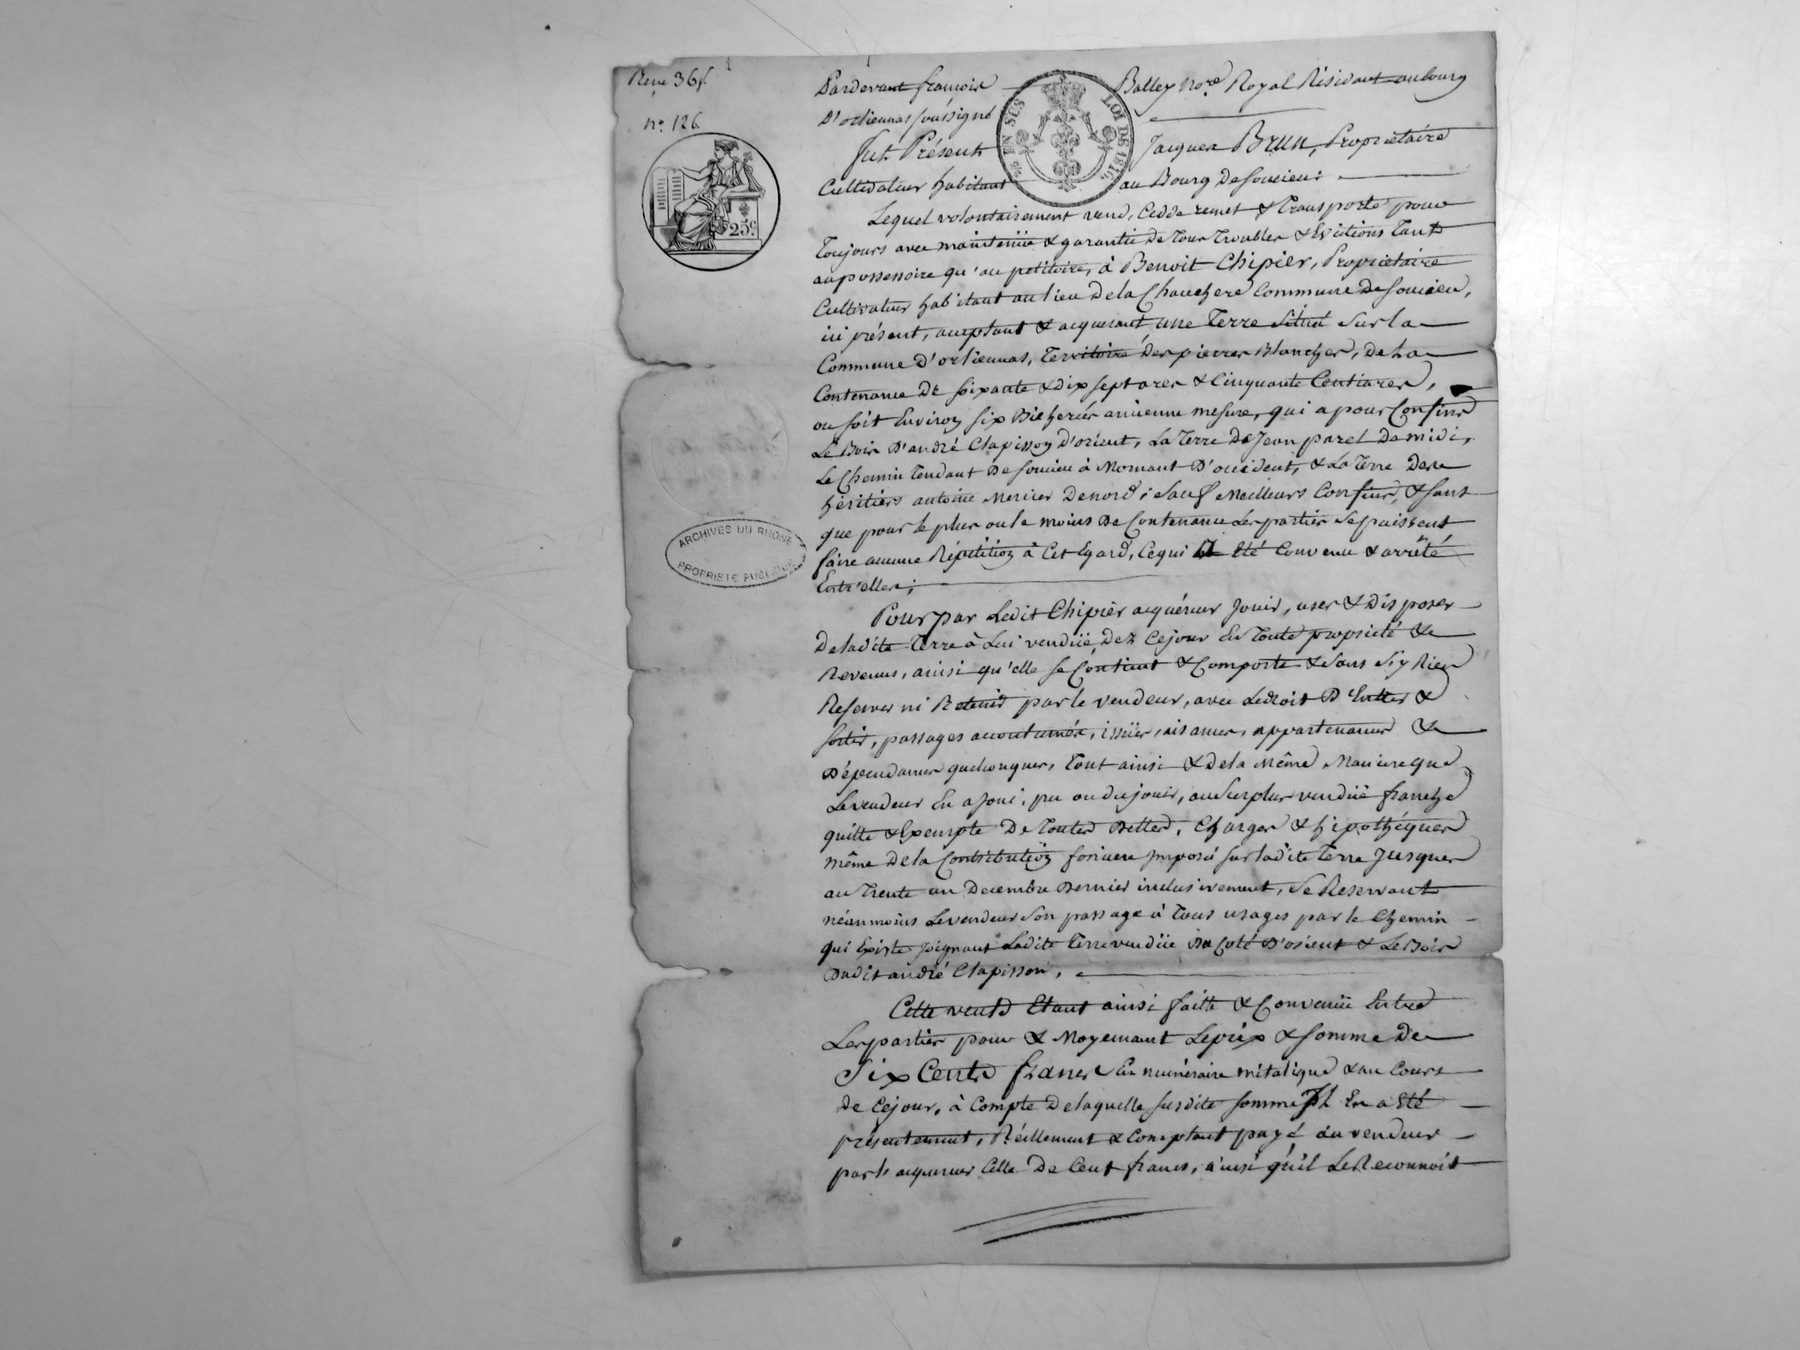 Reçu 36f.
n.º 126
25.c
EN SUS
LOI DE 1816.
ARCHIVES DU RHÔNE
PROPRIÉTÉ PUBLIQUE
Pardevant françois Balley No.re Royal Résidant au bourg
D'orliennas soussigné
fut Présent Jacques Brun, Propriétaire
Cultivateur habitant au Bourg De soucieu;
Lequel volontairement vend, Cedde remet & Transporte pour
Toujours avec maintenüe & garantie de Tous Troubles & Evictions Tant
au possessoire qu'au petitoire, à Benoit Chipier, Propriétaire
Cultivateur habitant au lieu de la Chauchere Commune De soucieu,
ici présent, acceptant & acquerant, une Terre Situé Sur la
Commune D'orliennas, Territoire Des pierres Blanches, De La
Contenance De soixante & dix sept ares & Cinquante Centiares,
ou soit Environ six Bicherés ancienne mesure, qui a pour Confins
Le Bois D'andré Clapisson D'orient, La Terre De Jean parel De midi,
Le Chemin Tendant De soucieu à Mornant D'occident, & La Terre Des
héritiers antoine Mercier De nord; Sauf Meilleurs Confins, & sans
que pour le plus ou le moins De Contenance Les parties Se puissent
faire aucune Répétition à Cet Egard, Ce qui a Eté Convenu & arrêté
Entr'elles;
Pour par Ledit Chipier acquéreur Jouir, user & Disposer
De ladite Terre à Lui vendüe Dez Ce jour En Toute propriété &
Revenus, ainsi qu'elle se Contient & Comporte & sans S'y Rien
Reserver ni Retenir par le vendeur, avec Le droit D'Entrer &
sortir, passages accoutumés, issües, aisances, appartenances &
Dépendances quelconques, Tout ainsi & de la Même Maniere que
Le vendeur En a Joui, pu ou du jouir, au Surplus vendüe franche
quitte & Exempte De Toutes Dettes, Charges & hipothéques
même De la Contribution fonciere Imposé sur ladite Terre Jusques
au Trente un Decembre Dernier inclusivement, Se Reservant
néanmoins Le vendeur Son passage à Tous usages par le Chemin
qui Existe joignant Ladite Terre vendüe Du Coté D'orient & Le Bois
Dudit andré Clapisson.
Cette vente Etant ainsi faite & Convenüe Entre
Les parties pour & Moyennant Le prix & somme De
Six Cents francs En numéraire métalique & au Cours
de Ce jour, à Compte De laquelle susdite somme Il En a Eté
présentement, Réellement & Comptant payé au vendeur
par l'acquereur Celle De Cent francs, ainsi qu'il Le Reconnoit